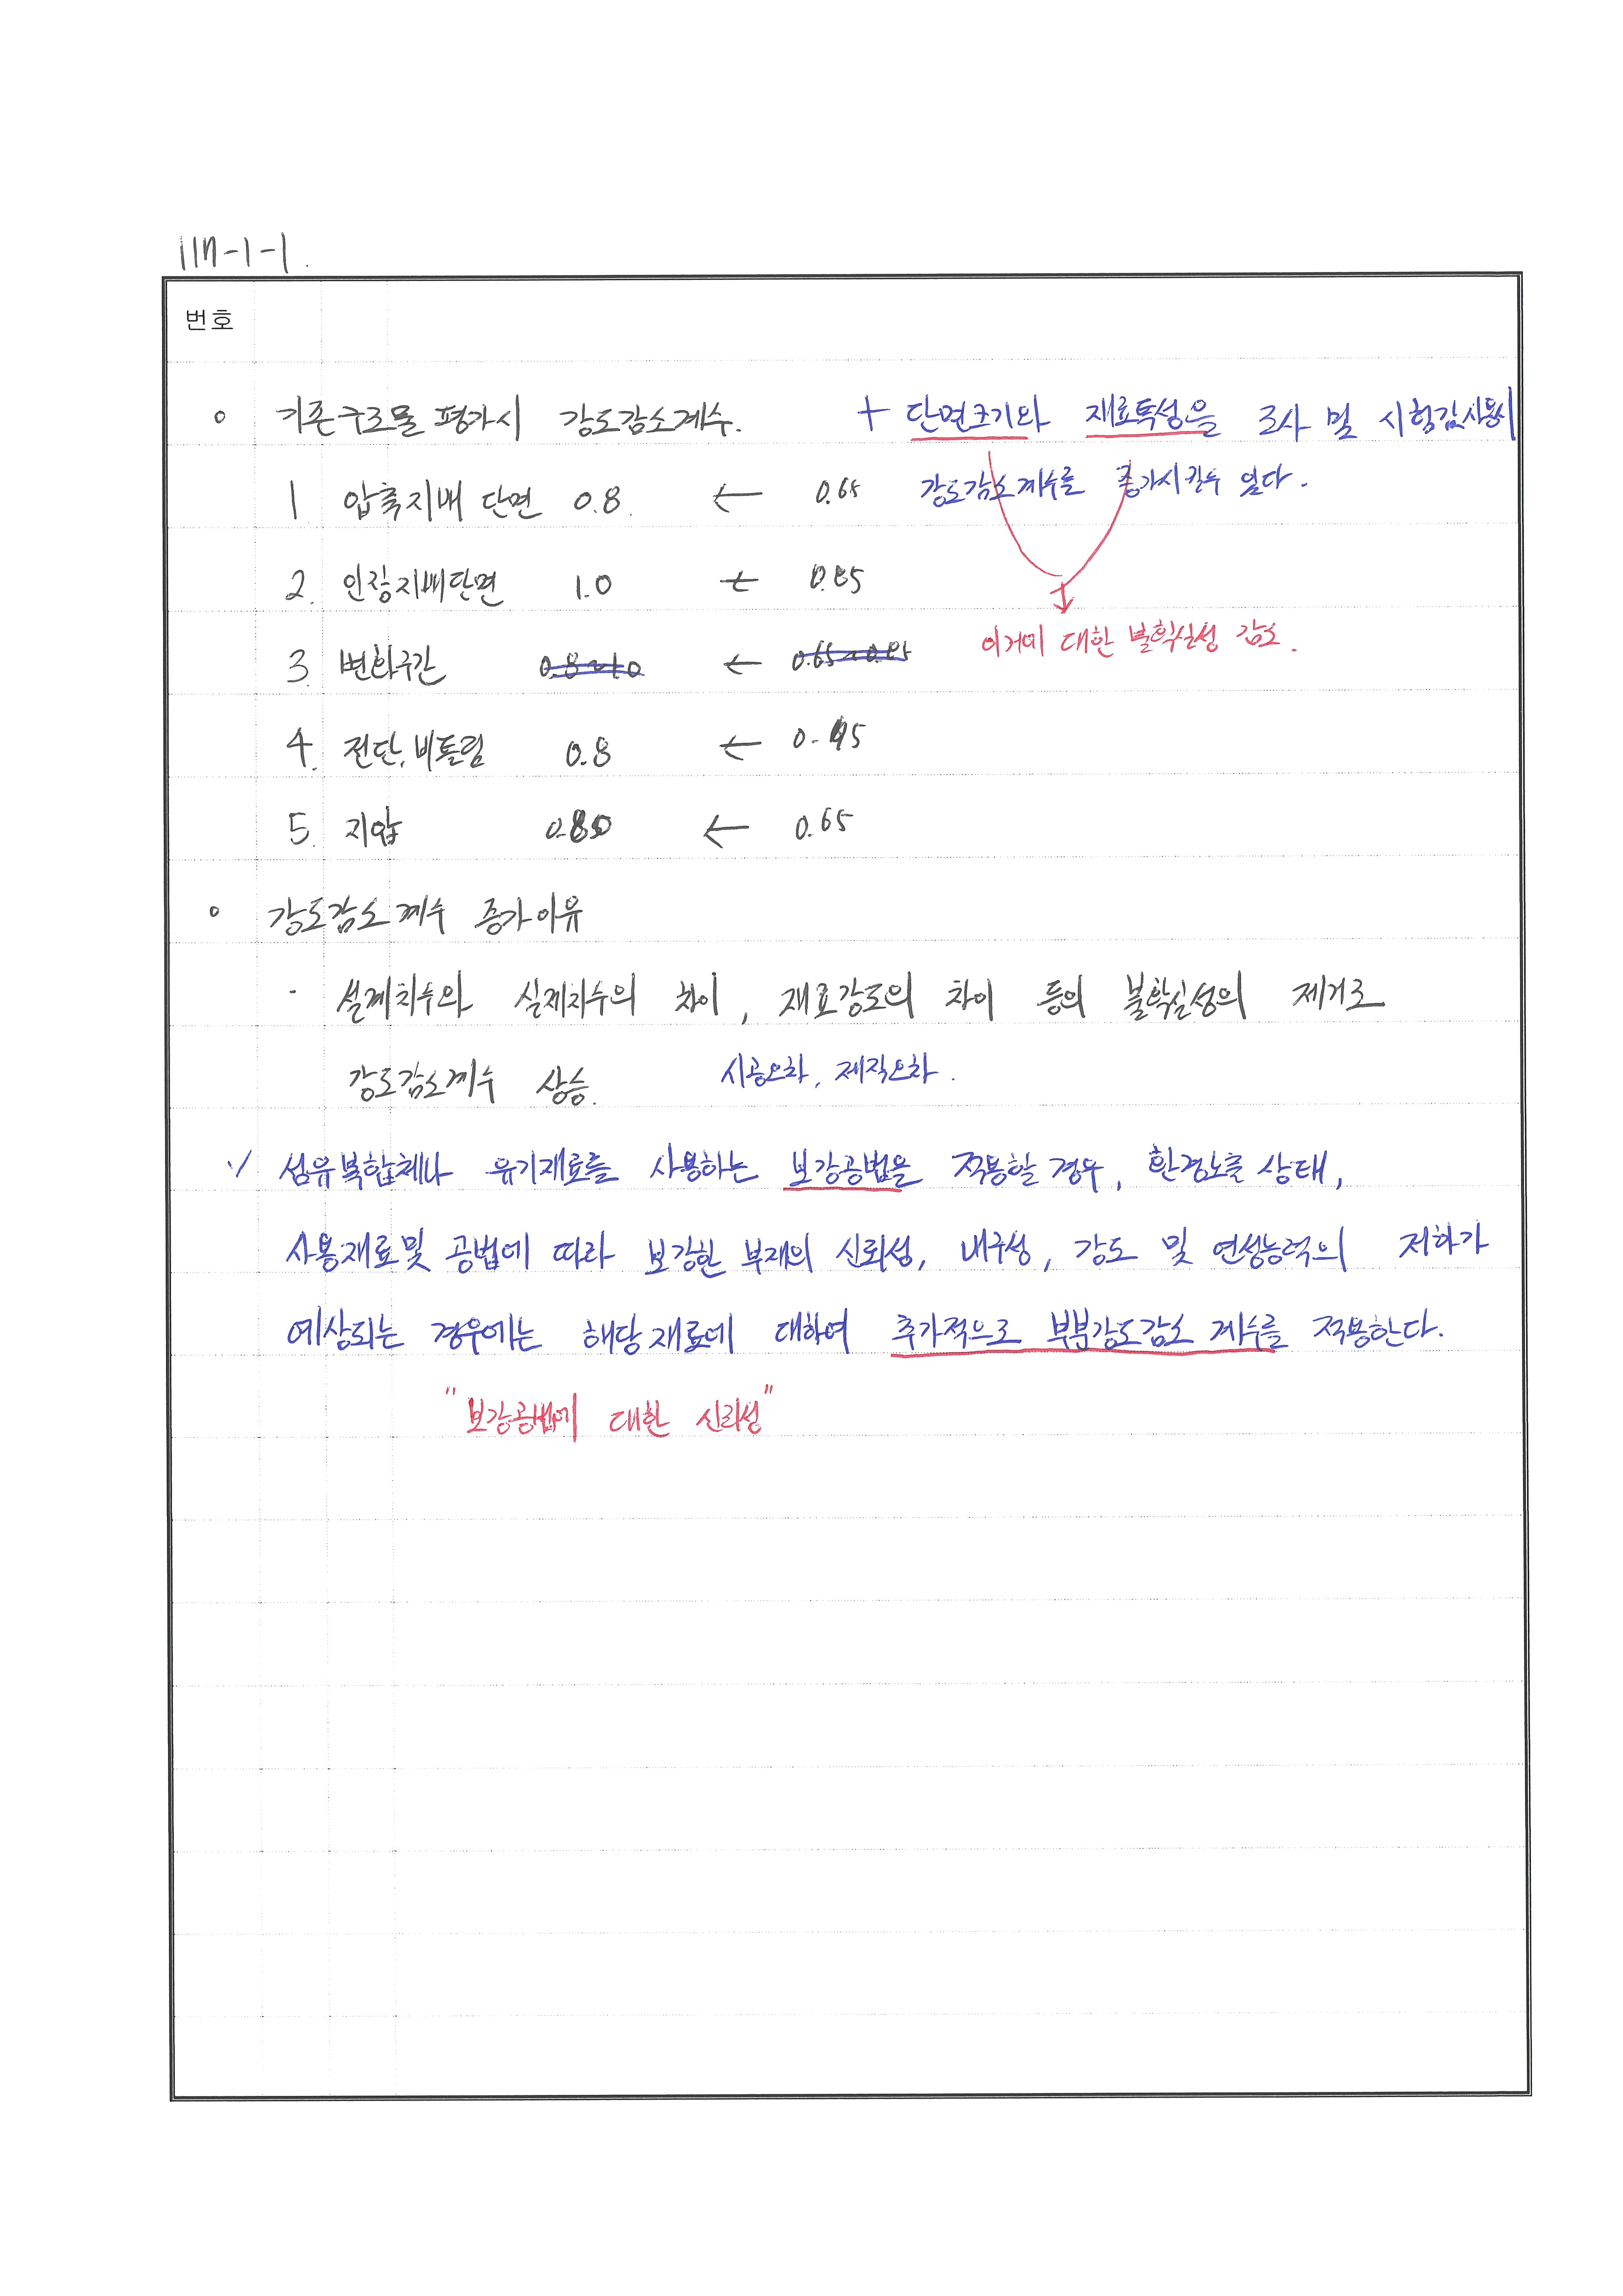 117-1-1.
번호
○ 기존구조물 평가시 강도감소계수. + 단면크기와 재료특성을 조사 및 시험값사용시
강도감소계수를 증가시킬수 있다.
1. 압축지배 단면 0.8. ← 0.65
2. 인장지배단면 1.0 ← 0.85
이거에 대한 불확실성 감소.
3. 변화구간 0.8~1.0 ← 0.65~0.85
4. 전단, 비틀림 0.8 ← 0.75
5. 지압 0.80 ← 0.65
○ 강도감소계수 증가이유
- 설계치수와 실제치수의 차이, 재료강도의 차이 등의 불확실성의 제거로
강도감소계수 상승. 시공오차, 제작오차.
섬유복합체나 유기재료를 사용하는 보강공법을 적용할 경우, 환경노출 상태,
사용재료 및 공법에 따라 보강한 부재의 신뢰성, 내구성, 강도 및 연성능력의 저하가
예상되는 경우에는 해당 재료에 대하여 추가적으로 부분강도감소 계수를 적용한다.
"보강공법에 대한 신뢰성"